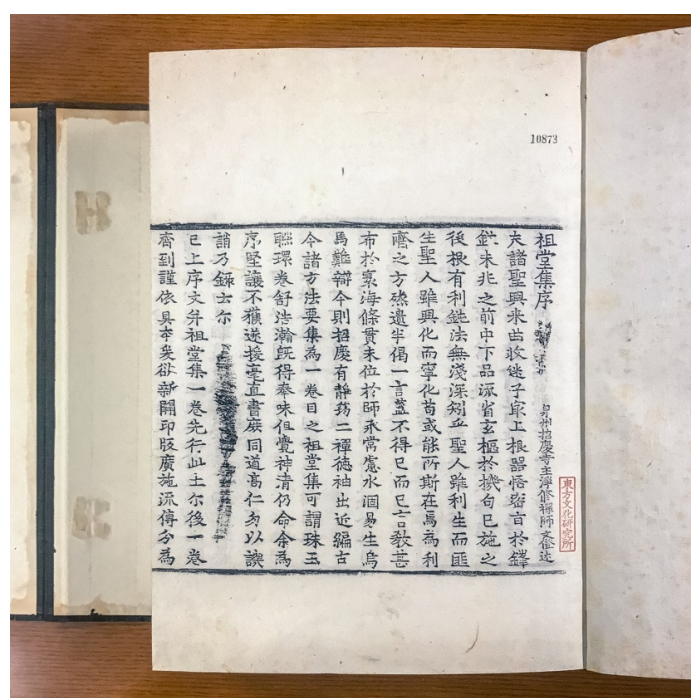 10873
祖堂集序 泉州招慶寺主淨修禪師文僜述
夫諸聖興來曲收迷子最上根器悟密旨於鋒
鋩未兆之前中下品流省玄樞於機句已施之
後根有利鈍法無淺深矧乎聖人雖利生而匪
生聖人雖興化而寧化苟或能所斯在焉為利
濟之方然遣半偈一言蓋不得已而已言教甚
布於寰海條貫未位於師承常慮水涸易生烏
馬難辯今則招慶有靜筠二禪德袖出近編古
今諸方法要集為一卷目之祖堂集可謂珠玉
聯環卷舒浩瀚既得奉味但覺神清仍命余為
序堅讓不獲遂援毫直書庶同道高仁勿以譏
誚乃錄云尔
已上序文并祖堂集一卷先行此土尔後一卷
齊到謹依具本爰欲新開印版廣施流傳分為
東方文化研究所